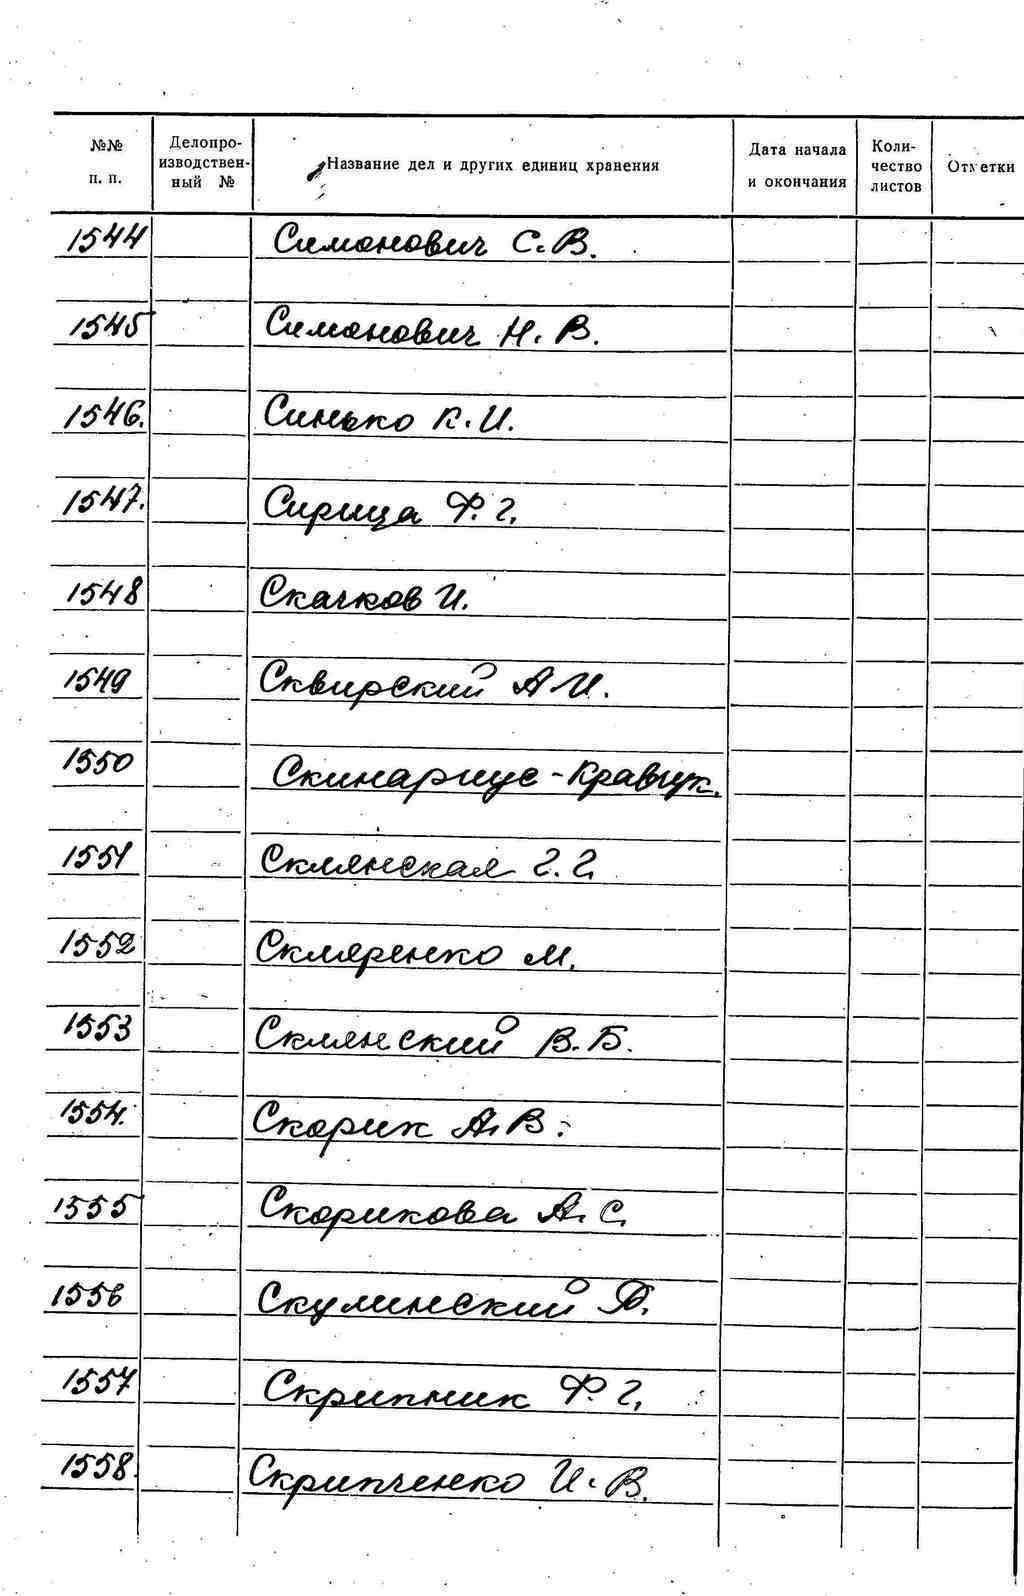 №№ п. п. Делопроизводственный № Название дел и других единиц хранения Дата начала и окончания Количество листов Отметки
1544 Симонович С. В.
1545 Симонович Н. В.
1546. Синько К. И.
1547. Сирица Ф. Г.
1548 Скачков И.
1549 Сквирский А. И.
1550 Скинариус-Кравчук.
1551 Склянская Г. Г.
1552 Скляренко М.
1553 Склянский В. Б.
1554. Скорик А. В.
1555 Скорикова А. С.
1556 Скулинский
1557 Скрипник Ф. Г.
1558. Скрипченко И. В.